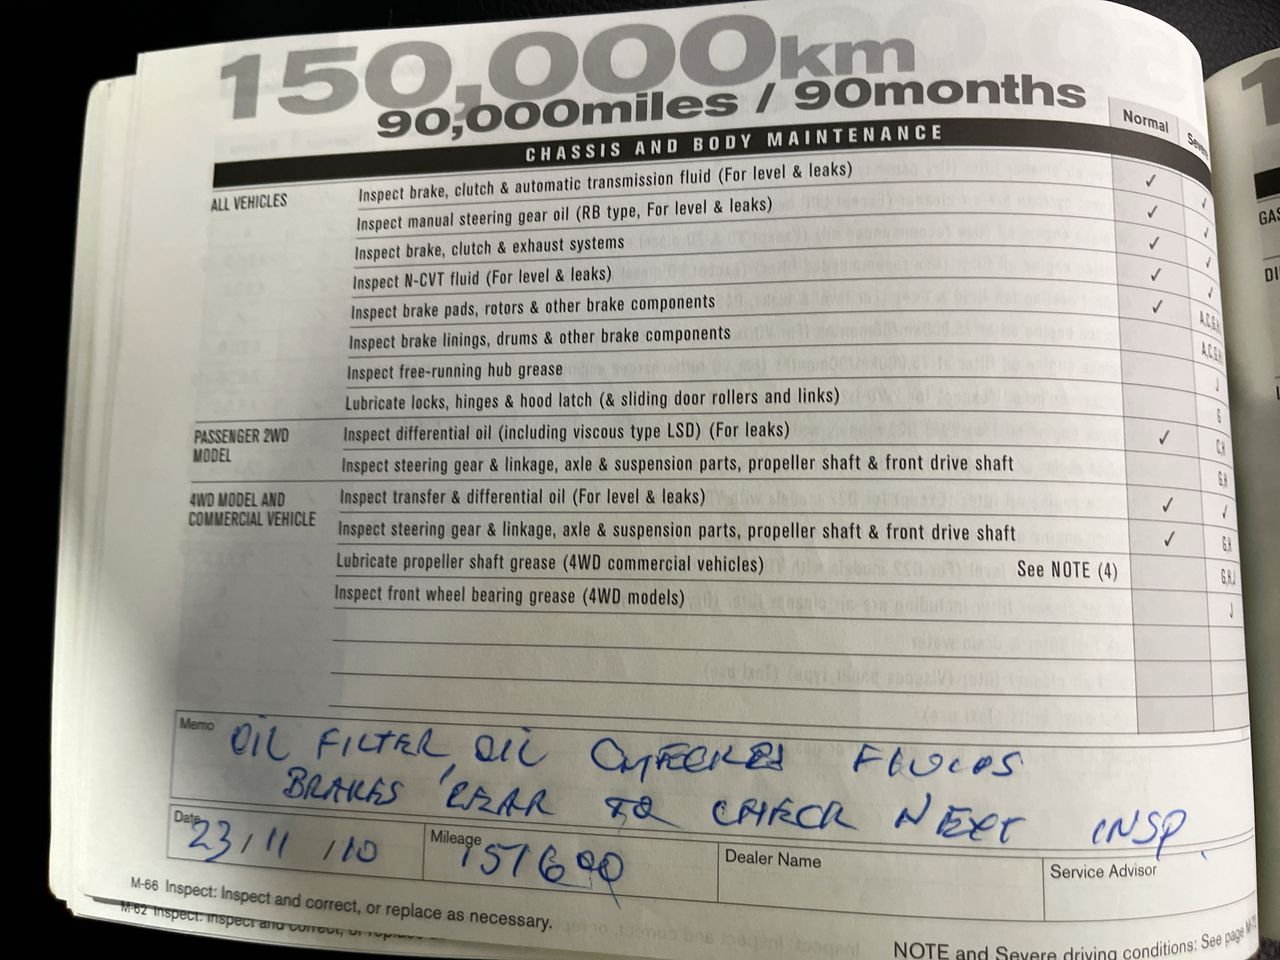 150,000km
90,000miles / 90months
CHASSIS AND BODY MAINTENANCE
Normal
ALL VEHICLES
Inspect brake, clutch & automatic transmission fluid (For level & leaks) ✓ ✓
Inspect manual steering gear oil (RB type, For level & leaks) ✓ ✓
Inspect brake, clutch & exhaust systems ✓ ✓
Inspect N-CVT fluid (For level & leaks) ✓ ✓
Inspect brake pads, rotors & other brake components ✓ A,C,G,H
Inspect brake linings, drums & other brake components A,C,G,H
Inspect free-running hub grease J
Lubricate locks, hinges & hood latch (& sliding door rollers and links) G
PASSENGER 2WD
MODEL
Inspect differential oil (including viscous type LSD) (For leaks) ✓ C,H
Inspect steering gear & linkage, axle & suspension parts, propeller shaft & front drive shaft G,H
4WD MODEL AND
COMMERCIAL VEHICLE
Inspect transfer & differential oil (For level & leaks) ✓ ✓
Inspect steering gear & linkage, axle & suspension parts, propeller shaft & front drive shaft ✓ G,H
Lubricate propeller shaft grease (4WD commercial vehicles) See NOTE (4) G,H,J
Inspect front wheel bearing grease (4WD models) J
Memo
OIL FILTER, OIL CHECKED FLUIDS
BRAKES 'REAR TO CHECK NEXT INSP.
Date 23/11/10
Mileage 151600
Dealer Name
Service Advisor
M-66 Inspect: Inspect and correct, or replace as necessary.
M-62 Inspect: Inspect and correct, or
NOTE and Severe driving conditions: See page